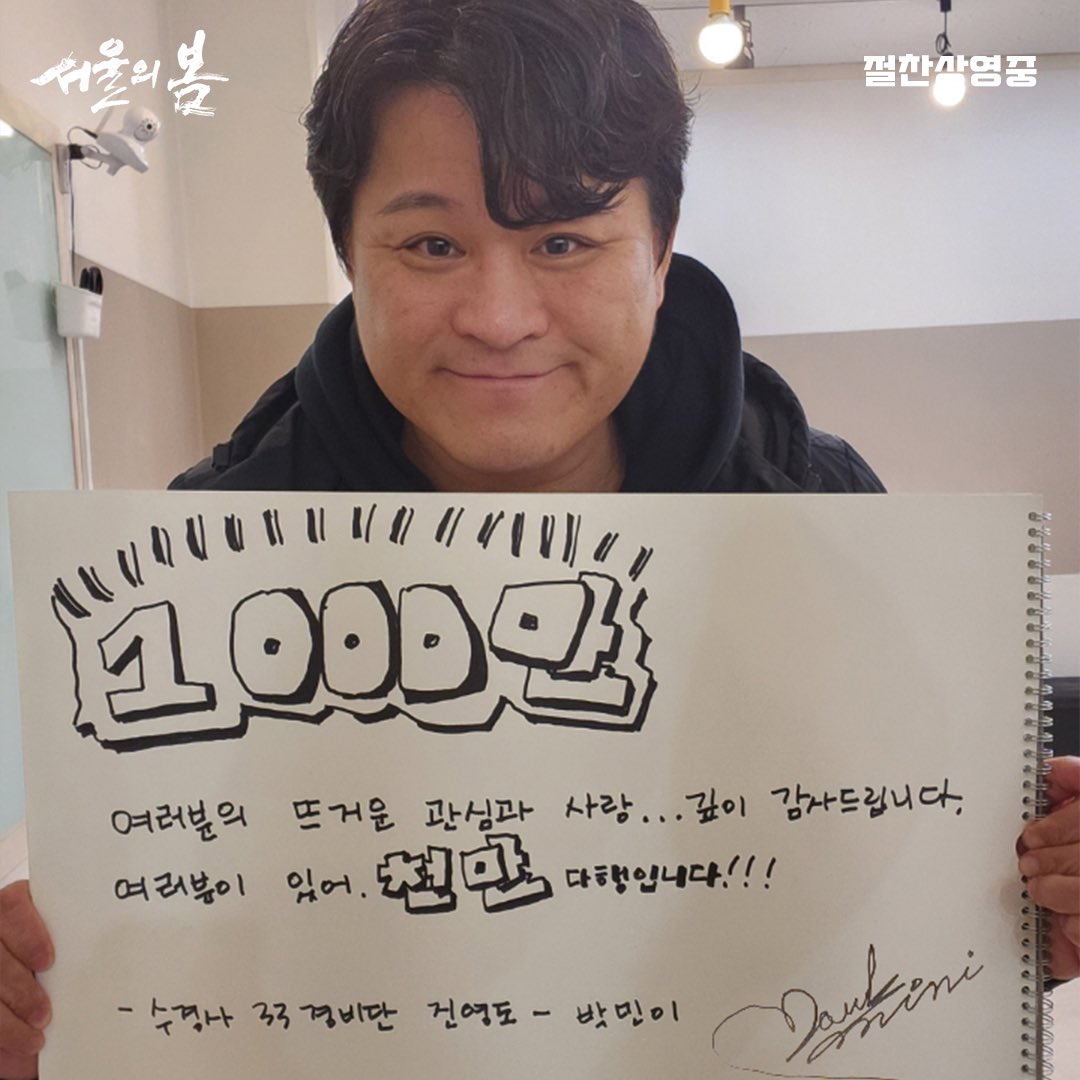 서울의봄
절찬상영중
1000만
여러분의 뜨거운 관심과 사랑...깊이 감사드립니다.
여러분이 있어. 천만 다행입니다!!!
- 수경사 33경비단 진영도 - 박민이